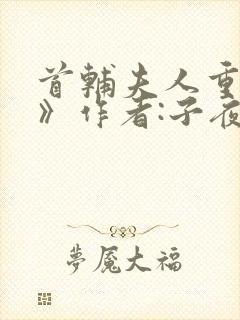 首辅夫人重
》作者:子夜
梦魇大福